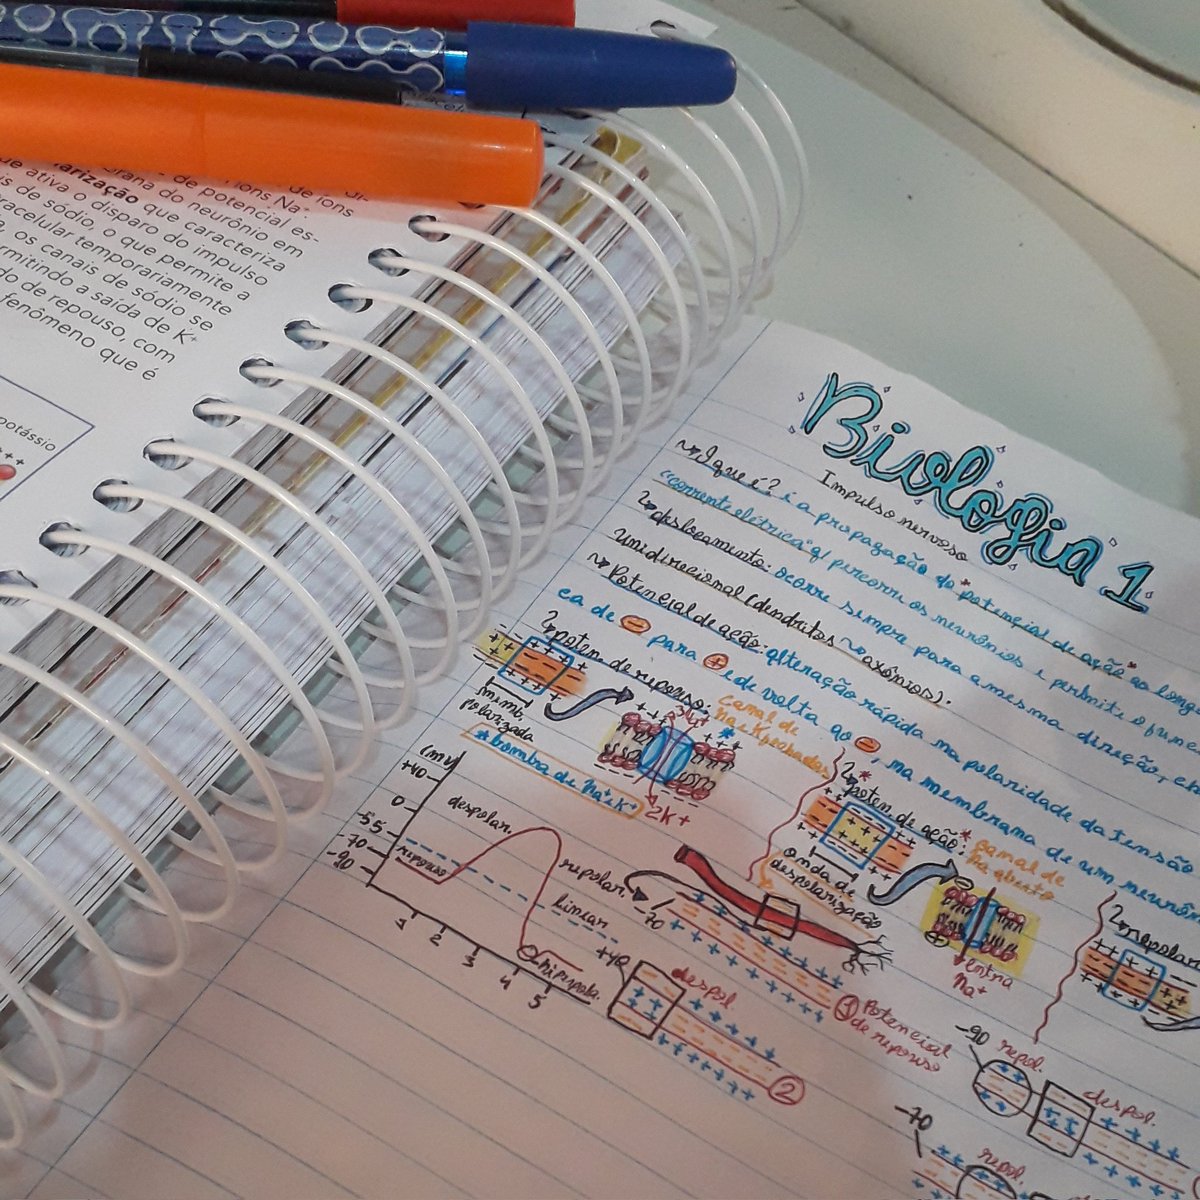 de ions
de potencial es-
arização que caracteriza
ue ativa o disparo do impulso
is de sódio, o que permite a
racelular temporariamente
os canais de sódio se
rmitindo a saída de K+
do de repouso, com
fenômeno que é
potássio
Biologia 1
Impulso nervoso
O que é? é a propagação do *potencial de ação* ao long
"corrente elétrica" q/ percorre os neurônios e permite o func
deslocamento: ocorre sempre para a mesma direção, é
unidirecional (dendritos → axônios).
Potencial de ação: alteração rápida na polaridade da tensão
ca de - para + e de volta ao -, na membrana de um neurôn
poten. de repouso:
memb.
polarizada
* bomba de Na+ e K+
3Na+
2K+
canal de
Na e K fechados
poten. de ação:
onda de
despolarização
canal de
Na aberto
entra
Na+
repolar
(mV)
+40
0
-55
-70
-90
despolar.
repouso
repolar.
limiar
hiperpola.
1 2 3 4 5
-70
1 Potencial
de repouso
+40
despol.
2
-90
repol.
despol.
-70
repol.